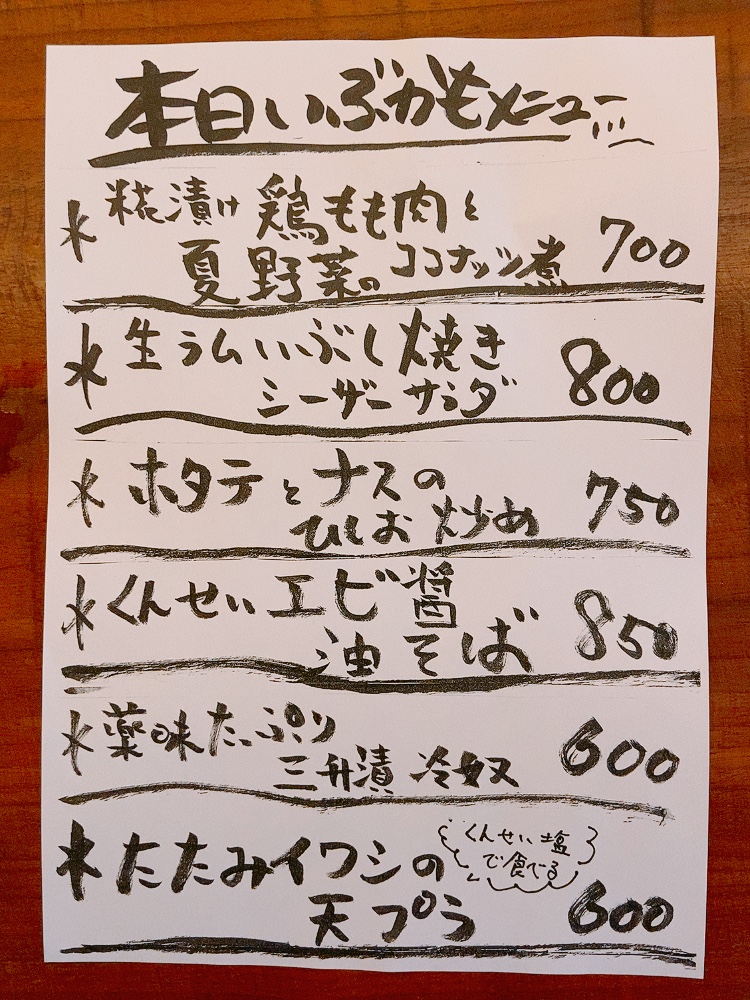 本日いぶかもメニュー
糀漬け鶏もも肉と
夏野菜のココナッツ煮 700
生ラムいぶし焼き
シーザーサラダ 800
ホタテとナスの
ひしお炒め 750
くんせいエビ醤
油そば 850
薬味たっぷり
三升漬 冷奴 600
たたみイワシの
天プラ 600
くんせい塩
で食べる